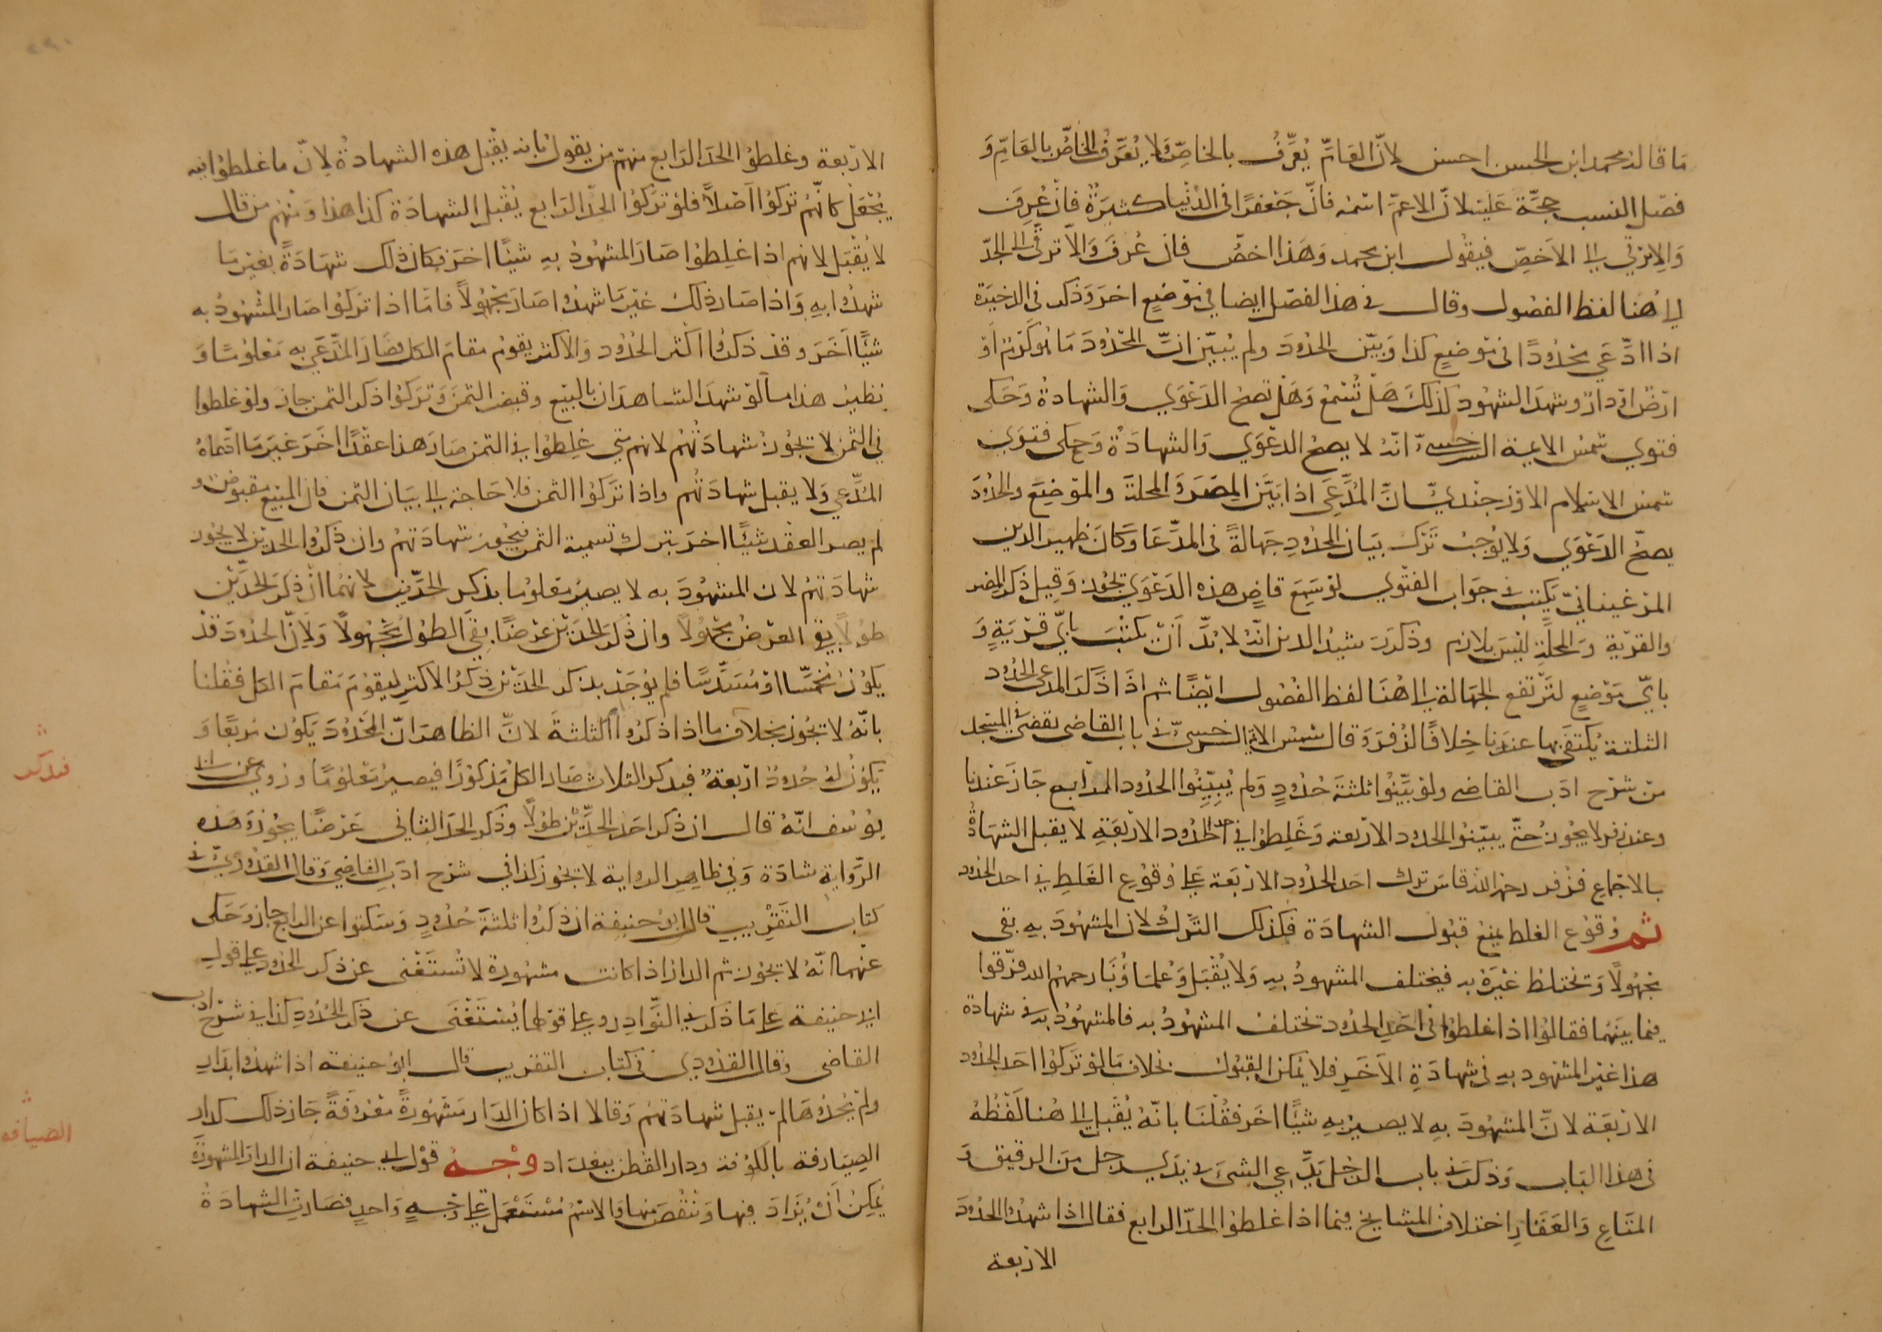 ما قاله محمد ابن الحسن احسن لانّ العَامّ يُعرَّفُ بالخاصّ ولا يُعرَّف الخاصّ بالعَامّ وَ
فصَل النسب حجّة عَليه لانّ الاعمّ اسْمه فانّ جَعْفرًا فى الدُنيا كثيرَةٌ فانْ عُرِفَ
وَالا ترقّى الى الاَخصّ فيقول ابن محمد وَهَذا اخصُّ فان عُرفَ وَالّا ترقّى الى الجدّ
الى هُنا لفظ الفصُول وقال فى هذا الفصْل ايضا فى مَوْضعٍ اخرَ وَذكر فى الذخيرَة
اذا ادّعَى محْدُودًا فى مَوْضِعٍ كذا وَبيّن الحدُودَ ولم يُبيّن انّ المحْدُودَ مَا هُوَ كَرْم اَوْ
ارْض اوْ دار وشهدَ الشهُود كذلكَ هَلْ تُسْمَعُ وَهَلْ تصحُ الدَعْوَى وَالشهادةُ وَحَكى
فتوى شمْس الايمة السرخسىّ انّهُ لا يصحُ الدعْوَى وَالشهادَةُ وَحكى فتوَى
شمس الاسْلام الاوْزجنْدىّ انَّ المُدَّعىَ اذا بَيَّن المِصْرَ وَ المحلةَ والموْضِعَ والحُدُودَ
يصحّ الدَعْوَى وَلا يُوجبُ تَرْك بَيَان الحُدُودِ جَهَالةً فى المدّعَا وَكانَ ظهير الدين
المرغينانىّ يَكْتب فى جَواب الفتْوى لوْ سَمِعَ قاضٍ هذه الدَعْوَى تجُوز وَقِيل ذكر المصْر
والقرْية وَ المحلة ليْسَ بلازم وذكَرَ رشيدُ الدين انّهُ لا بُدَّ اَنْ يكْتبَ بايّ قرْيَةٍ وَ
بايّ مَوْضعٍ لتَرْتفع الجهَالة الى هُنا لفظ الفُصُول ايْضًا ثم اذَا ذَكَرَ المدعى الحدُود
الثلثة يُكْتفَى بها عندَنا خِلافًا لزُفرَ وَقال شمس الائمة السرخسىّ فى باب القاضى يقضى فى المسْجد
من شرْح ادَب القاضى ولوْ بَيَّنُوا ثلثةَ حدُودٍ وَلم يُبيِّنُوا الحدُود الرابع جَازَ عندنا
وعند زفر لا يجُوزُ حتّى يبيّنُوا الحدُود الارْبعة وَغَلِطوُا فى احد الحدُود الارْبَعَةِ لا يقبل الشهَادةُ
بالاجْماع فزفر رحمه الله قاسَ ترك احدَ الحدُود الارْبَعة على وُقوُع الغَلطِ فى احد الحدُود
ثم وُقوُع الغلط يمنعُ قبُول الشهادَة فكذلك التَرْكُ لان المشهُودَ بهِ بقى
مجْهُولاً وَتختلطُ غيْرَهُ به فيختلف المشهودُ بهِ وَلا يُقْبَل وَعُلمَاؤُنَا رحمهُم الله فرَّقوا
فيما بيَنَهُمَا فقالوُا اذا غلطوُا فى احَدِ الحدُود تختلف المشهُودُ به فالمشهُوُدُ به فى شهادة
هذا غيْر المشهود بهِ فى شهادَةِ الآخَرِ فلا يمكن القبُوُل بخلاف مَا لوْ تَركوُا احَد الحدُود
الارْبَعَة لانّ المشهُودَ بهِ لا يصيرُ بهِ شيْئًا اخَر فقُلْنَا بانّهُ يُقْبل الى هُنا لَفْظُهُ
فى هذا الباب وَذكرَ فى باب الرجُل يَدَّعى الشئ فى يَدَىْ رجل منَ الرقيق وَ
المتَاعِ وَالعَقَارِ اختلاف المشايخ فيما اذا غلطوُا الحدّ الرابع فقال اذا شهدُوا الحدُودَ
الاربعة
الارْبعة وغلطوُا الحدَ الرَابع منهُم مَن يقول بانه يقْبل هذه الشهادةُ لانّ ما غلطوُا فيه
يُجْعَل كانّهُم تركوُا اصْلاً فلوْ تركوُا الحدَّ الرَابع يُقْبل الشهادَة كذا هذا وَمنهُم من قال
لا يُقْبَل لانهم اذا غلِطوا صَارَ المشهُودُ بهِ شيئًا اخَرَ فكان ذلك شهَادَةً بغير مَا
شهدُوا بهِ وَاذا صَار ذلك غيْرَ مَا شهدُوا صَارَ مجْهُولاً فامّا اذا تركوُا صَار المشْهُودُ به
شيْئًا اخَرَ وقدْ ذكرُوا اكثر الحدُود والاكثر يقوُم مقام الكل فصَارَ المدَّعَى به مَعْلوُمًا وَ
نظيرُ هذا مسألة شهدَ الشاهدَان بالبيْع وقبض الثمَن وَتركوُا ذكر الثمن جازَ ولوْ غلطوا
فى الثمن لا تجُوزُ شهادَتُهُم لانهم متى غلِطوا فى الثمن صَارَ هذا عقْدًا اخَرَ غيرَ مَا ادّعَاهُ
المُدَّعى وَلا يقبل شهادَتُهُم واذا تَركوُا الثمن فلا حَاجة الى بيَان الثمن فان المبيْع مقبوض و
لم يصر العقْد شيْئًا اخرَ بترك تسمية الثمن فيَجُوز شهادَتهُمْ وان ذكَرُوا الحدّيْن لا يجُوز
شهادَتهُمْ لان المشهُودَ به لا يصيرُ معَلوُمًا بذكر الحَدّيْن لانهُمَا انْ ذكرَ الحدَّيْن
طوْلاً بقى العرْضُ مجْهُولاً وان ذكرَ الحدّيْن عرْضًا بقى الطوُل مجَهُولاً وَلانّ الحدُودَ قدْ
يكوُن مُخمَّسًا اوْ مُسَدَّسًا فلم يُوجَدْ بذكر الحدّيْن ذكرُ الاكثر ليقوُمَ مَقامَ الكل فقلنا
بانّهُ لا تجُوز بخلاف ما اذا ذكرُوا الثلثةَ لانَّ الظاهرَ انّ المحْدُودَ يَكوُن مُربَعًا وَ
يَكوُنُ لهُ حُدوُد ارْبعة فبذكر الثلاث صَار الكلّ مَذكوُرًا فيصيرُ مَعْلوُمًا وروُىَ عن ابى
يوُسُف انّهُ قال ان ذكر احَد الحدَّيْن طوْلاً وذكر الحدّ الثانى عَرْضًا يجُوزُ وَهَذه
الرّوَاية شادَة وَفى ظاهِر الرواية لا تجُوز كذا فى شرْح ادَب القاضى وَقال القدُورىّ فى
كتاب التقْريب قال ابوُ حنيفة ان ذكرُوا ثلثة حُدُودٍ وَسَكتوا عن الرابع جاز وَحَكى
عنهُما انّهُ لا تجُوز ثم الدار اذا كانت مشهُورة لا تُسْتَغْنى عن ذكر الحدُود على قول
ابى حنيفة على مَا ذكر فى النّوَادِر وعلى قولهما يُسْتَغْنى عن ذكر الحُدُودِ كذا فى شرْح ادَب
القاضى وقال القدُورى فى كتاب التقريب قال ابوُ حنيفة اذا شهدُوا بدَارٍ
ولم يَحُدُّوهَا لم يقبل شهادَتهُمْ وَقالا اذا كان الدَار مَشْهُورةً مَعْرُوفَةً جَاز ذلك كدار
الصيَارفة بالكوُفة ودار القُطن ببغدَاد وَجْهُ قوْل ابى حنيفة ان الدارَ المشْهُورَةَ
يُمكِنُ اَنْ يُزَادَ فِيهَا وَينْقُصَ منهَا وَالاسْمُ مُسْتَعْمَل على وَجْهٍ وَاحدٍ فصَارتِ الشهادَةُ
فذكر
الصيارفه